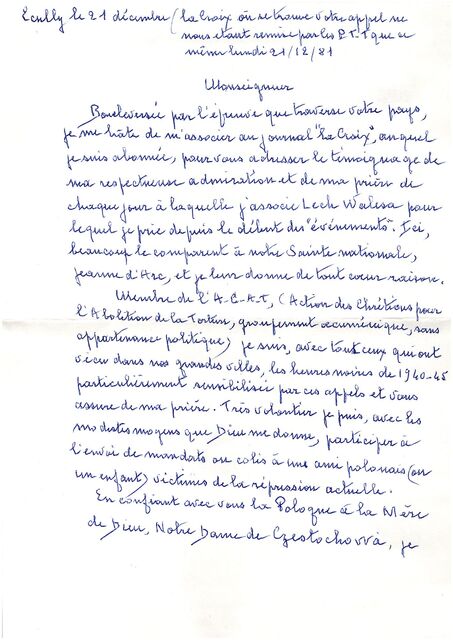 Ecully le 21 décembre (la Croix où se trouve votre appel ne
nous étant remise par les P.T.T que ce
même lundi 21/12/81
Monseigneur
Bouleversée par l'épreuve que traverse votre pays,
je me hâte de m'associer au journal "la Croix", auquel
je suis abonnée, pour vous adresser le témoignage de
ma respectueuse admiration et de ma prière de
chaque jour à laquelle j'associe Lech Walesa pour
lequel je prie depuis le début des "événements". Ici,
beaucoup le comparent à notre Sainte nationale,
Jeanne d'Arc, et je leur donne de tout cœur raison.
Membre de l'A.C.A.T, (Action des Chrétiens pour
l'Abolition de la Torture, groupement œcuménique, sans
appartenance politique) je suis, avec tous ceux qui ont
vécu dans nos grandes villes, les heures noires de 1940-45
particulièrement sensibilisée par ces appels et vous
assure de ma prière. Très volontier je puis, avec les
modestes moyens que Dieu me donne, participer à
l'envoi de mandats ou colis à une ami polonais (ou
un enfant) victimes de la répression actuelle.
En confiant avec vous la Pologne à la Mère
de Dieu, Notre Dame de Czestochovva, je